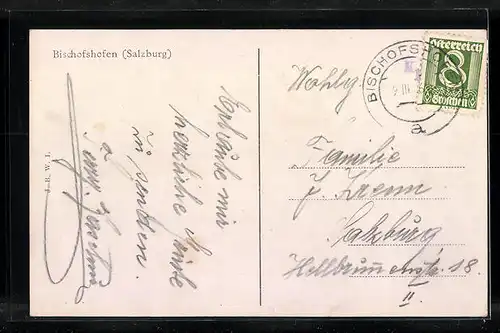 Bischofshofen (Salzburg)
Erlaube mir
herzliche Grüße
zu senden.
J. B. W. I.
BISCHOFSH
a
Österreich
8
Groschen
Wohlg
Familie
J. Zrenn
Salzburg
Hellbrunnerstr. 18.
II